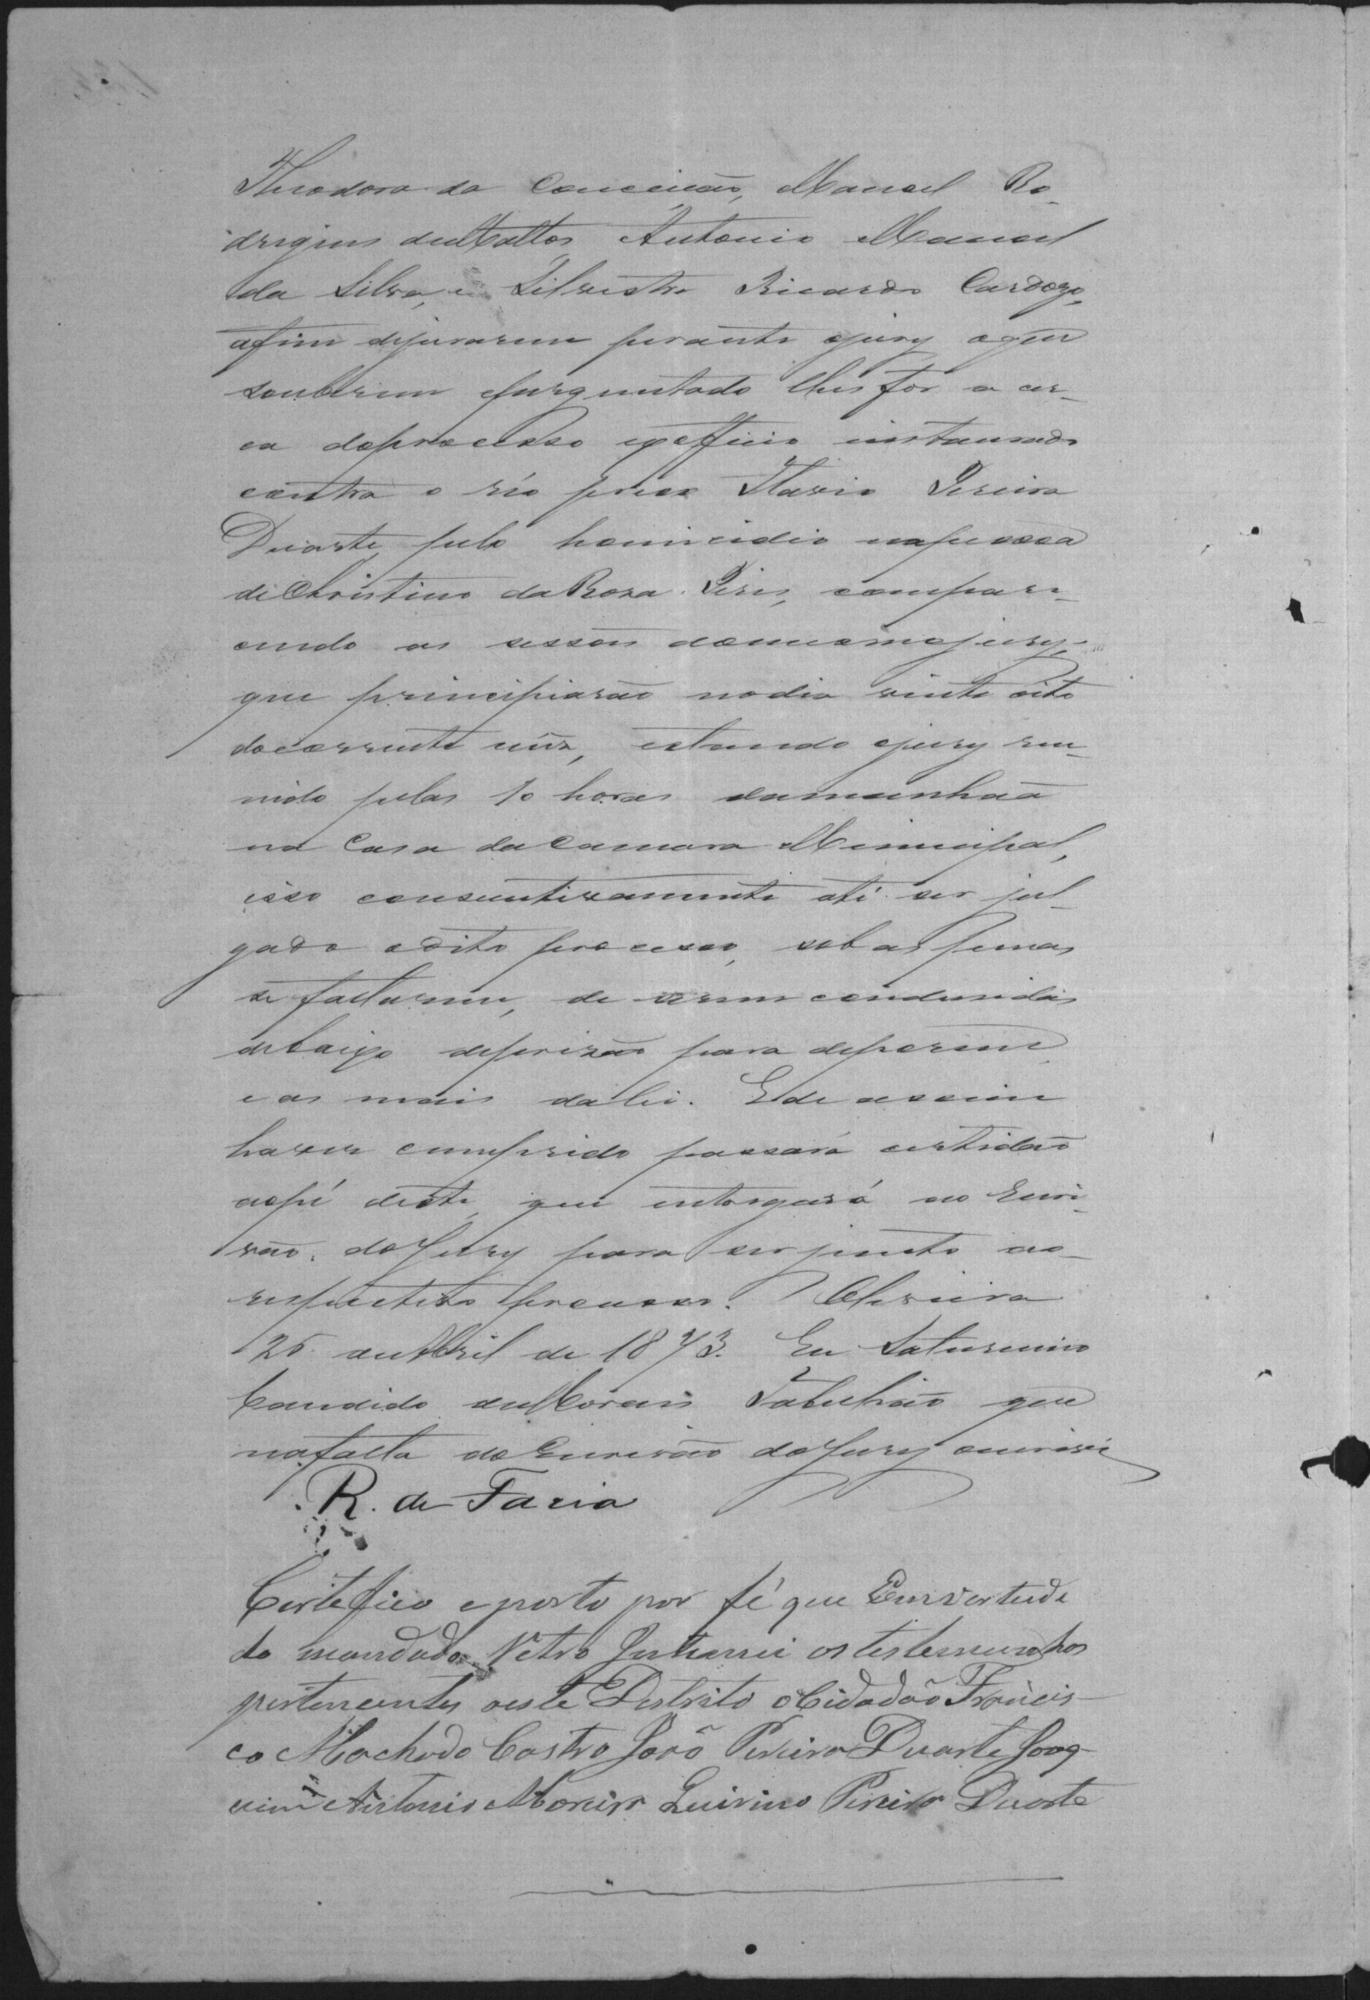 Theodora da Conceição, Manoel Ro-
drigues de Mattos, Antonio Manoel
da Silva, e Silvestre Ricardo Cardozo,
afim dejurarem perante ojury oque
souberem eperguntado lhes for a cer-
ca doprocesso exofficio instaurado
contra o réo preso Flavio Pereira
Duarte, pelo homicidio napessoa
de Christino da Roza Pires, compare-
cendo as sessões domesmo jury,
que principiarão nodia vinte oito
docorrente mêz, estando ojury reu-
nido pelas 10 horas damanhaã
na Casa da Camara Municipal,
isso consecutivamente até ser jul-
gado odito processo, sob as penas
se faltarem, de serem condusidas
debaixo deprizão para deporem
e as mais da lei. E de assim
haver cumprido passará certidão
aopé deste, que entregará ao Escri-
vão do Jury para ser junto ao
respectivo processo. Oliveira
25 de Abril de 1873. Eu Saturnino
Candido de Moraes Tabelião que
nafalta do Escrivão do Jury escrevi
R. de Faria
Certefico e porto por fé que Em vertude
do mandado Retro Intimei as testemunhas
pertencentes aeste Destrito o Cidadão Francis-
co Machado Castro João Pereira Duarte Joaq-
uim Antonio Moreira Quirino Pereira Duarte